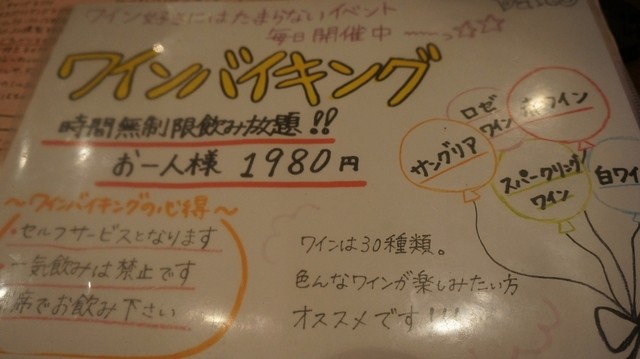 ワイン好きにはたまらないイベント
毎日開催中
ワインバイキング
時間無制限飲み放題!!
お一人様 1980円
〜ワインバイキングの心得〜
・セルフサービスとなります
一気飲みは禁止です
席でお飲み下さい
ロゼ
ワイン
赤ワイン
サングリア
スパークリング
ワイン
白ワイ
ワインは30種類。
色んなワインが楽しみたい方
オススメです!!!